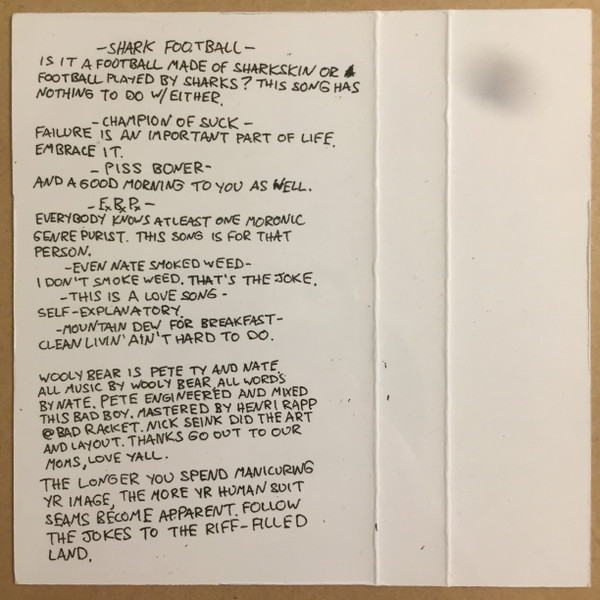 -SHARK FOOTBALL-
IS IT A FOOTBALL MADE OF SHARKSKIN OR A
FOOTBALL PLAYED BY SHARKS? THIS SONG HAS
NOTHING TO DO W/ EITHER.
-CHAMPION OF SUCK-
FAILURE IS AN IMPORTANT PART OF LIFE.
EMBRACE IT.
- PISS BONER-
AND A GOOD MORNING TO YOU AS WELL.
-E.B.P.-
EVERYBODY KNOWS ATLEAST ONE MORONIC
GENRE PURIST. THIS SONG IS FOR THAT
PERSON.
-EVEN NATE SMOKED WEED-
I DON'T SMOKE WEED. THAT'S THE JOKE.
-THIS IS A LOVE SONG-
SELF-EXPLANATORY.
-MOUNTAIN DEW FOR BREAKFAST-
CLEAN LIVIN' AIN'T HARD TO DO.
WOOLY BEAR IS PETE TY AND NATE.
ALL MUSIC BY WOOLY BEAR, ALL WORDS
BY NATE. PETE ENGINEERED AND MIXED
THIS BAD BOY. MASTERED BY HENRI RAPP
@ BAD RACKET. NICK SEINK DID THE ART
AND LAYOUT. THANKS GO OUT TO OUR
MOMS, LOVE YALL.
THE LONGER YOU SPEND MANICURING
YR IMAGE, THE MORE YR HUMAN SUIT
SEAMS BECOME APPARENT. FOLLOW
THE JOKES TO THE RIFF-FILLED
LAND.